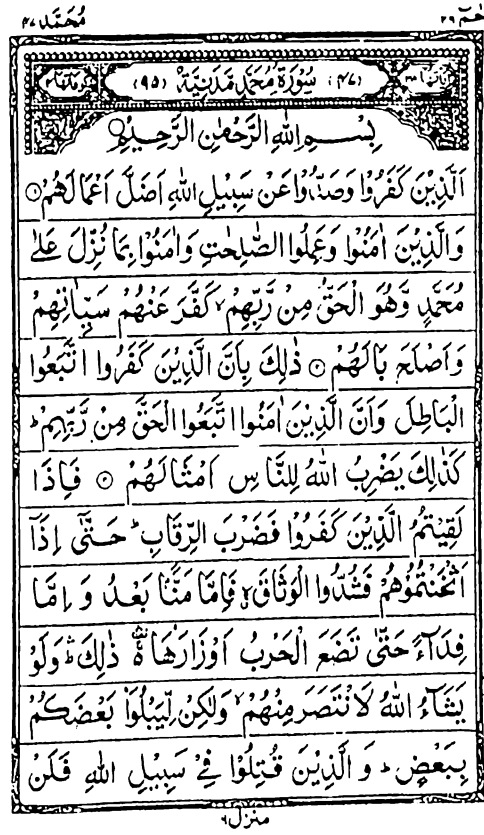 حٰمٓ ٢٦
مُحَمَّد ٤٧
اٰیاتها ٣٨ (٤٧) سُوْرَةُ مُحَمَّدٍ مَّدَنِيَّةٌ (٩٥) رکوعاتها ٤
بِسْمِ اللهِ الرَّحْمٰنِ الرَّحِيْمِ
اَلَّذِيْنَ كَفَرُوْا وَصَدُّوْا عَنْ سَبِيْلِ اللهِ اَضَلَّ اَعْمَالَهُمْ ۝١
وَالَّذِيْنَ اٰمَنُوْا وَعَمِلُوا الصّٰلِحٰتِ وَاٰمَنُوْا بِمَا نُزِّلَ عَلٰى
مُحَمَّدٍ وَّهُوَ الْحَقُّ مِنْ رَّبِّهِمْ ۙ كَفَّرَ عَنْهُمْ سَيِّاٰتِهِمْ
وَاَصْلَحَ بَالَهُمْ ۝٢ ذٰلِكَ بِاَنَّ الَّذِيْنَ كَفَرُوا اتَّبَعُوا
الْبَاطِلَ وَاَنَّ الَّذِيْنَ اٰمَنُوا اتَّبَعُوا الْحَقَّ مِنْ رَّبِّهِمْ ؕ
كَذٰلِكَ يَضْرِبُ اللهُ لِلنَّاسِ اَمْثَالَهُمْ ۝٣ فَاِذَا
لَقِيْتُمُ الَّذِيْنَ كَفَرُوْا فَضَرْبَ الرِّقَابِ ؕ حَتّٰۤى اِذَاۤ
اَثْخَنْتُمُوْهُمْ فَشُدُّوا الْوَثَاقَ ۙ فَاِمَّا مَنًّۢا بَعْدُ وَاِمَّا
فِدَآءً حَتّٰى تَضَعَ الْحَرْبُ اَوْزَارَهَا ۛ۬ۚ ذٰلِكَ ۛؕ وَلَوْ
يَشَآءُ اللهُ لَانْتَصَرَ مِنْهُمْ ۙ وَلٰكِنْ لِّيَبْلُوَا۟ بَعْضَكُمْ
بِبَعْضٍ ؕ وَالَّذِيْنَ قُتِلُوْا فِيْ سَبِيْلِ اللهِ فَلَنْ
منزل ٦